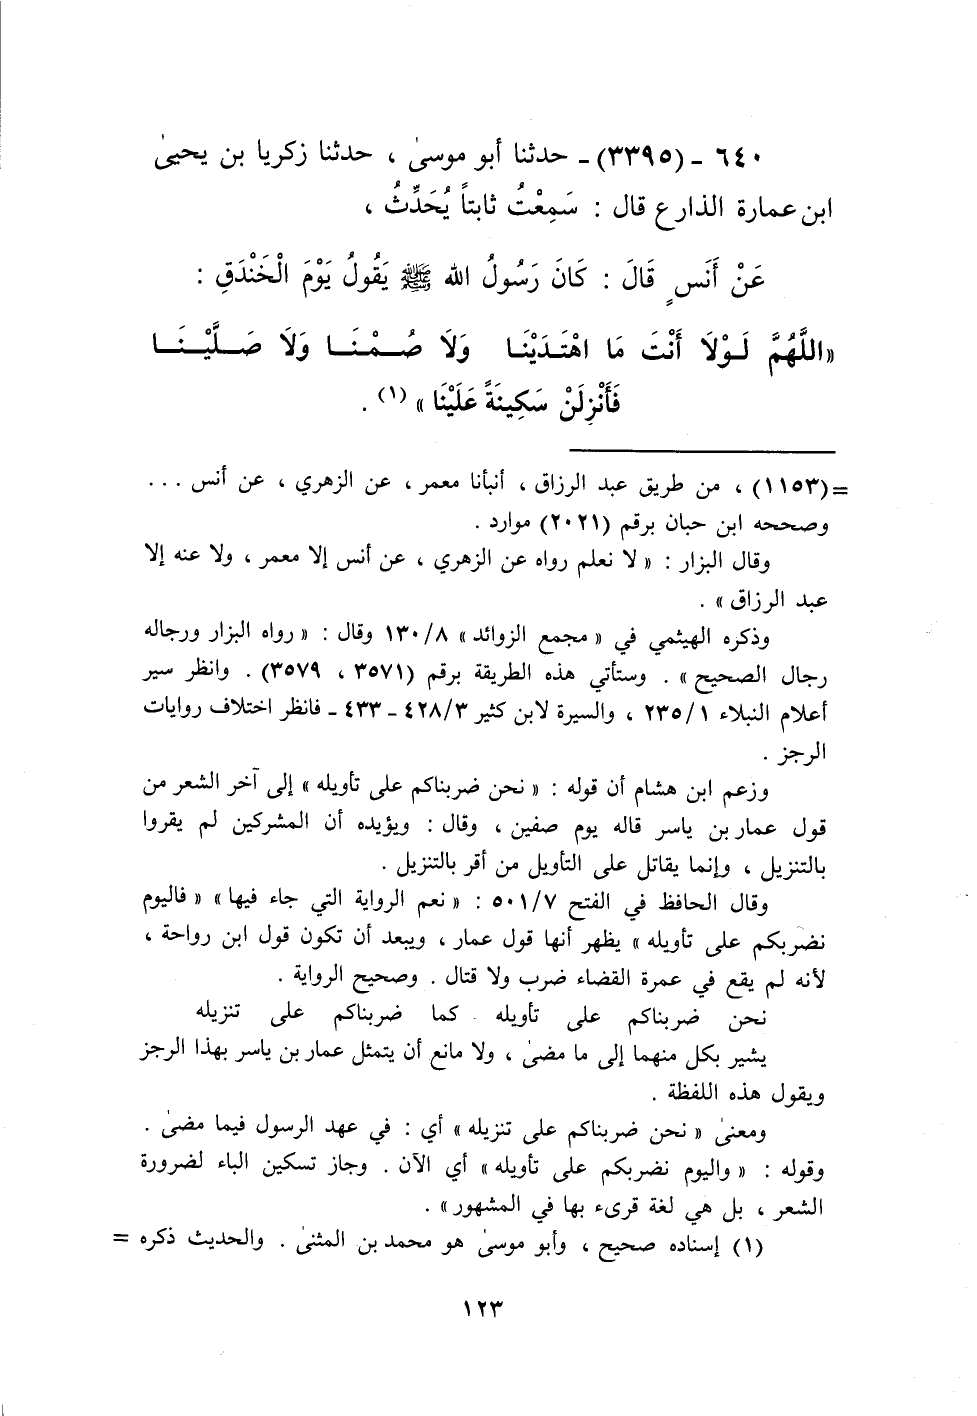 ٦٤٠ - (٣٣٩٥) - حدثنا أبو موسىٰ ، حدثنا زكريا بن يحيىٰ
ابن عمارة الذارع قال : سَمِعْتُ ثابتاً يُحَدِّثُ ،
عَنْ أَنَسٍ قَالَ : كَانَ رَسُولُ الله ﷺ يَقُولُ يَوْمَ الْخَنْدَقِ :
« اللَّهُمَّ لَـوْلَا أَنْتَ مَا اهْتَـدَيْنَـا وَلَا صُـمْنَـا وَلَا صَـلَّيْـنَـا
فَأَنْزِلَنْ سَكِينَةً عَلَيْنَا » (١) .
= (١١٥٣) ، من طريق عبد الرزاق ، أنبأنا معمر ، عن الزهري ، عن أنس ...
وصححه ابن حبان برقم (٢٠٢١) موارد .
وقال البزار : « لا نعلم رواه عن الزهري ، عن أنس إلا معمر ، ولا عنه إلا
عبد الرزاق » .
وذكره الهيثمي في « مجمع الزوائد » ١٣٠/٨ وقال : « رواه البزار ورجاله
رجال الصحيح » . وستأتي هذه الطريقة برقم (٣٥٧١ ، ٣٥٧٩) . وانظر سير
أعلام النبلاء ٢٣٥/١ ، والسيرة لابن كثير ٤٢٨/٣ - ٤٣٣ - فانظر اختلاف روايات
الرجز .
وزعم ابن هشام أن قوله : « نحن ضربناكم على تأويله » إلى آخر الشعر من
قول عمار بن ياسر قاله يوم صفين ، وقال : ويؤيده أن المشركين لم يقروا
بالتنزيل ، وإنما يقاتل على التأويل من أقر بالتنزيل .
وقال الحافظ في الفتح ٥٠١/٧ : « نعم الرواية التي جاء فيها » « فاليوم
نضربكم على تأويله » يظهر أنها قول عمار ، ويبعد أن تكون قول ابن رواحة ،
لأنه لم يقع في عمرة القضاء ضرب ولا قتال . وصحيح الرواية .
نحن ضربناكم على تأويله كما ضربناكم على تنزيله
يشير بكل منهما إلى ما مضىٰ ، ولا مانع أن يتمثل عمار بن ياسر بهذا الرجز
ويقول هذه اللفظة .
ومعنىٰ « نحن ضربناكم على تنزيله » أي : في عهد الرسول فيما مضىٰ .
وقوله : « واليوم نضربكم على تأويله » أي الآن . وجاز تسكين الباء لضرورة
الشعر ، بل هي لغة قرىء بها في المشهور » .
(١) إسناده صحيح ، وأبو موسىٰ هو محمد بن المثنىٰ . والحديث ذكره =
١٢٣